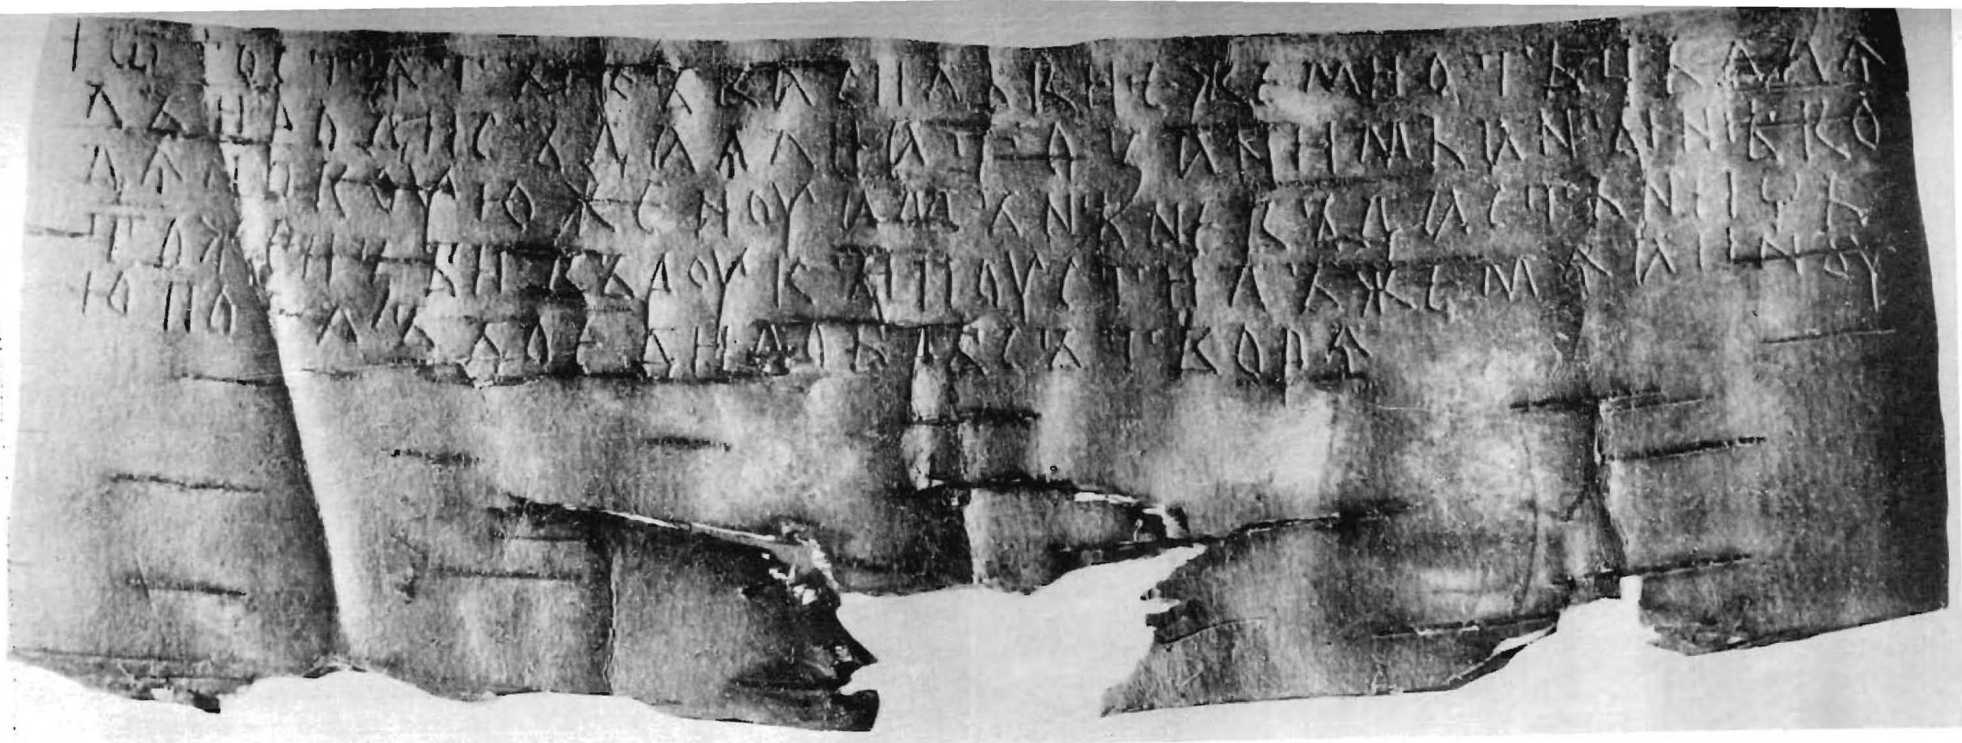 + ѿ гостѧты къ васильви ѥже ми отьць даѧ
лъ и роди съдаѧли а то за нимь а нынѣ во
дѧ новоую женоу а мънѣ не въдасть ничь
то же избивъ роукы поустилъ же мѧ а иноу
ю поѧлъ доеди добрѣ сътворѧ